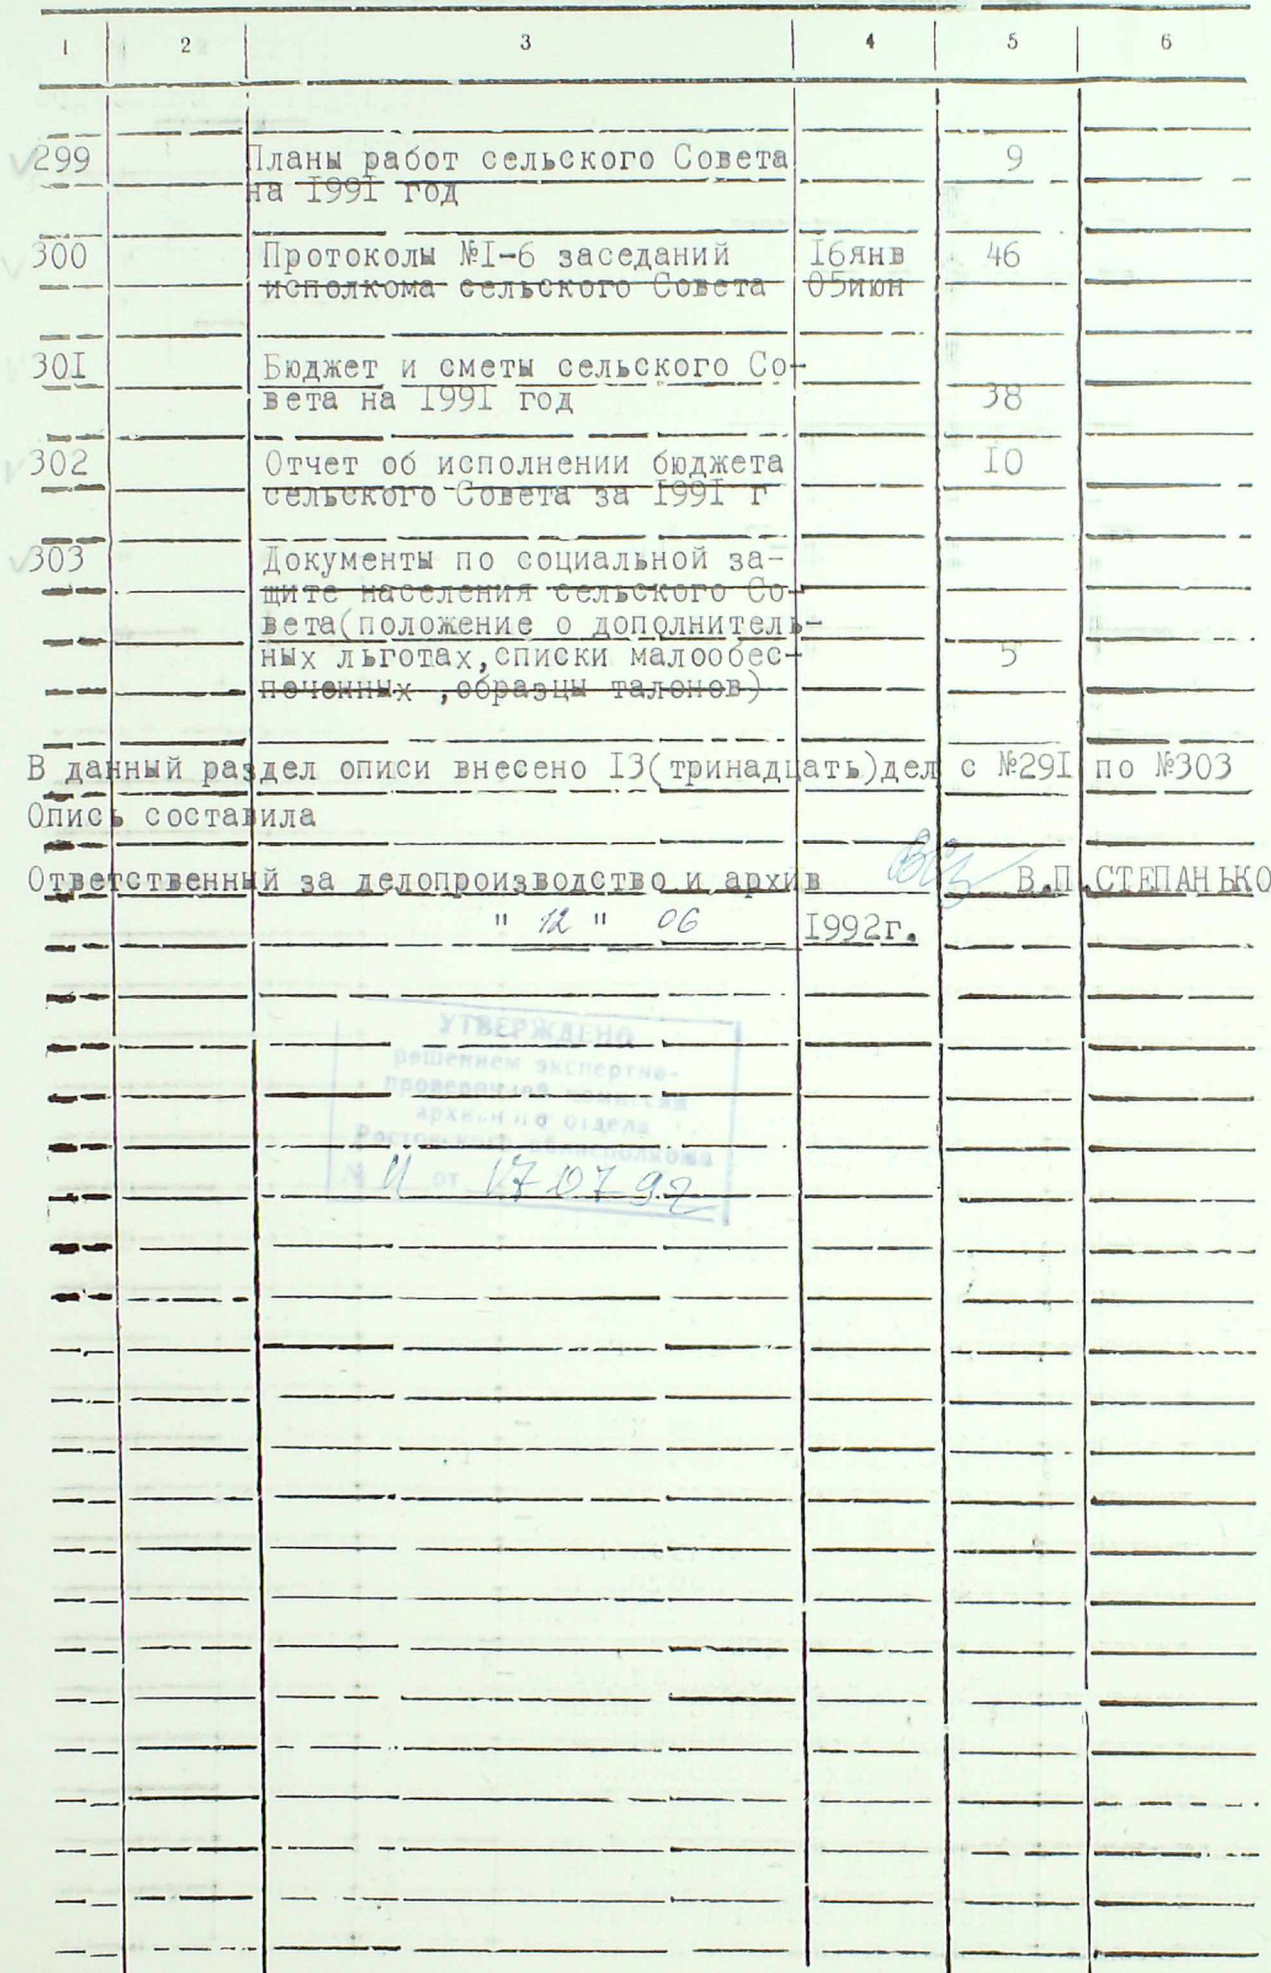 1 2 3 4 5 6
299 Планы работ сельского Совета 9
на 1991 год
300 Протоколы №1-6 заседаний 16янв 46
исполкома сельского Совета 05июн
301 Бюджет и сметы сельского Со-
вета на 1991 год 38
302 Отчет об исполнении бюджета 10
сельского Совета за 1991 г
303 Документы по социальной за-
щите населения сельского Со-
вета(положение о дополнитель-
ных льготах,списки малообес- 5
печенных ,образцы талонов)
В данный раздел описи внесено 13(тринадцать)дел с №291 по №303
Опись составила
Ответственный за делопроизводство и архив В.П.СТЕПАНЬКО
" 12 " 06 1992г.
УТВЕРЖДЕНО
решением экспертно-
проверочной комиссии
архивного отдела
Ростовского облисполкома
№ 11 от 17 07 92